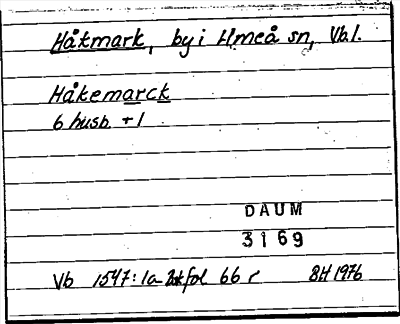 Håkmark, by i Umeå sn, Vb.
Håkemarck
6 husb. + 1
DAUM
3169
Vb 1547: 1a fol 66 r BH 1976